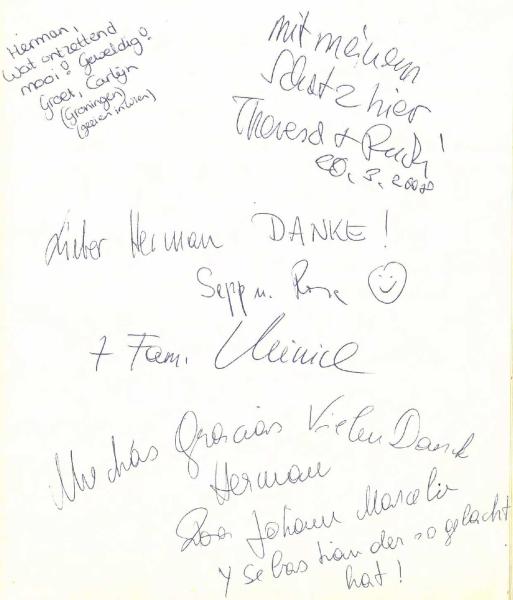 Herman,
Wat ontzettend
mooi! Geweldig!
Groet, Carlijn
(Groningen)
(gezien in Wien)
mit meinem
Schatz hier
Theresa + Rudi
20.3.2008
Lieber Herman DANKE!
Sepp u. Rosa
+ Fam.
Muchas Gracias Vielen Danck
Herman
Johann Marcelin
y sebastian der so gelacht
hat!